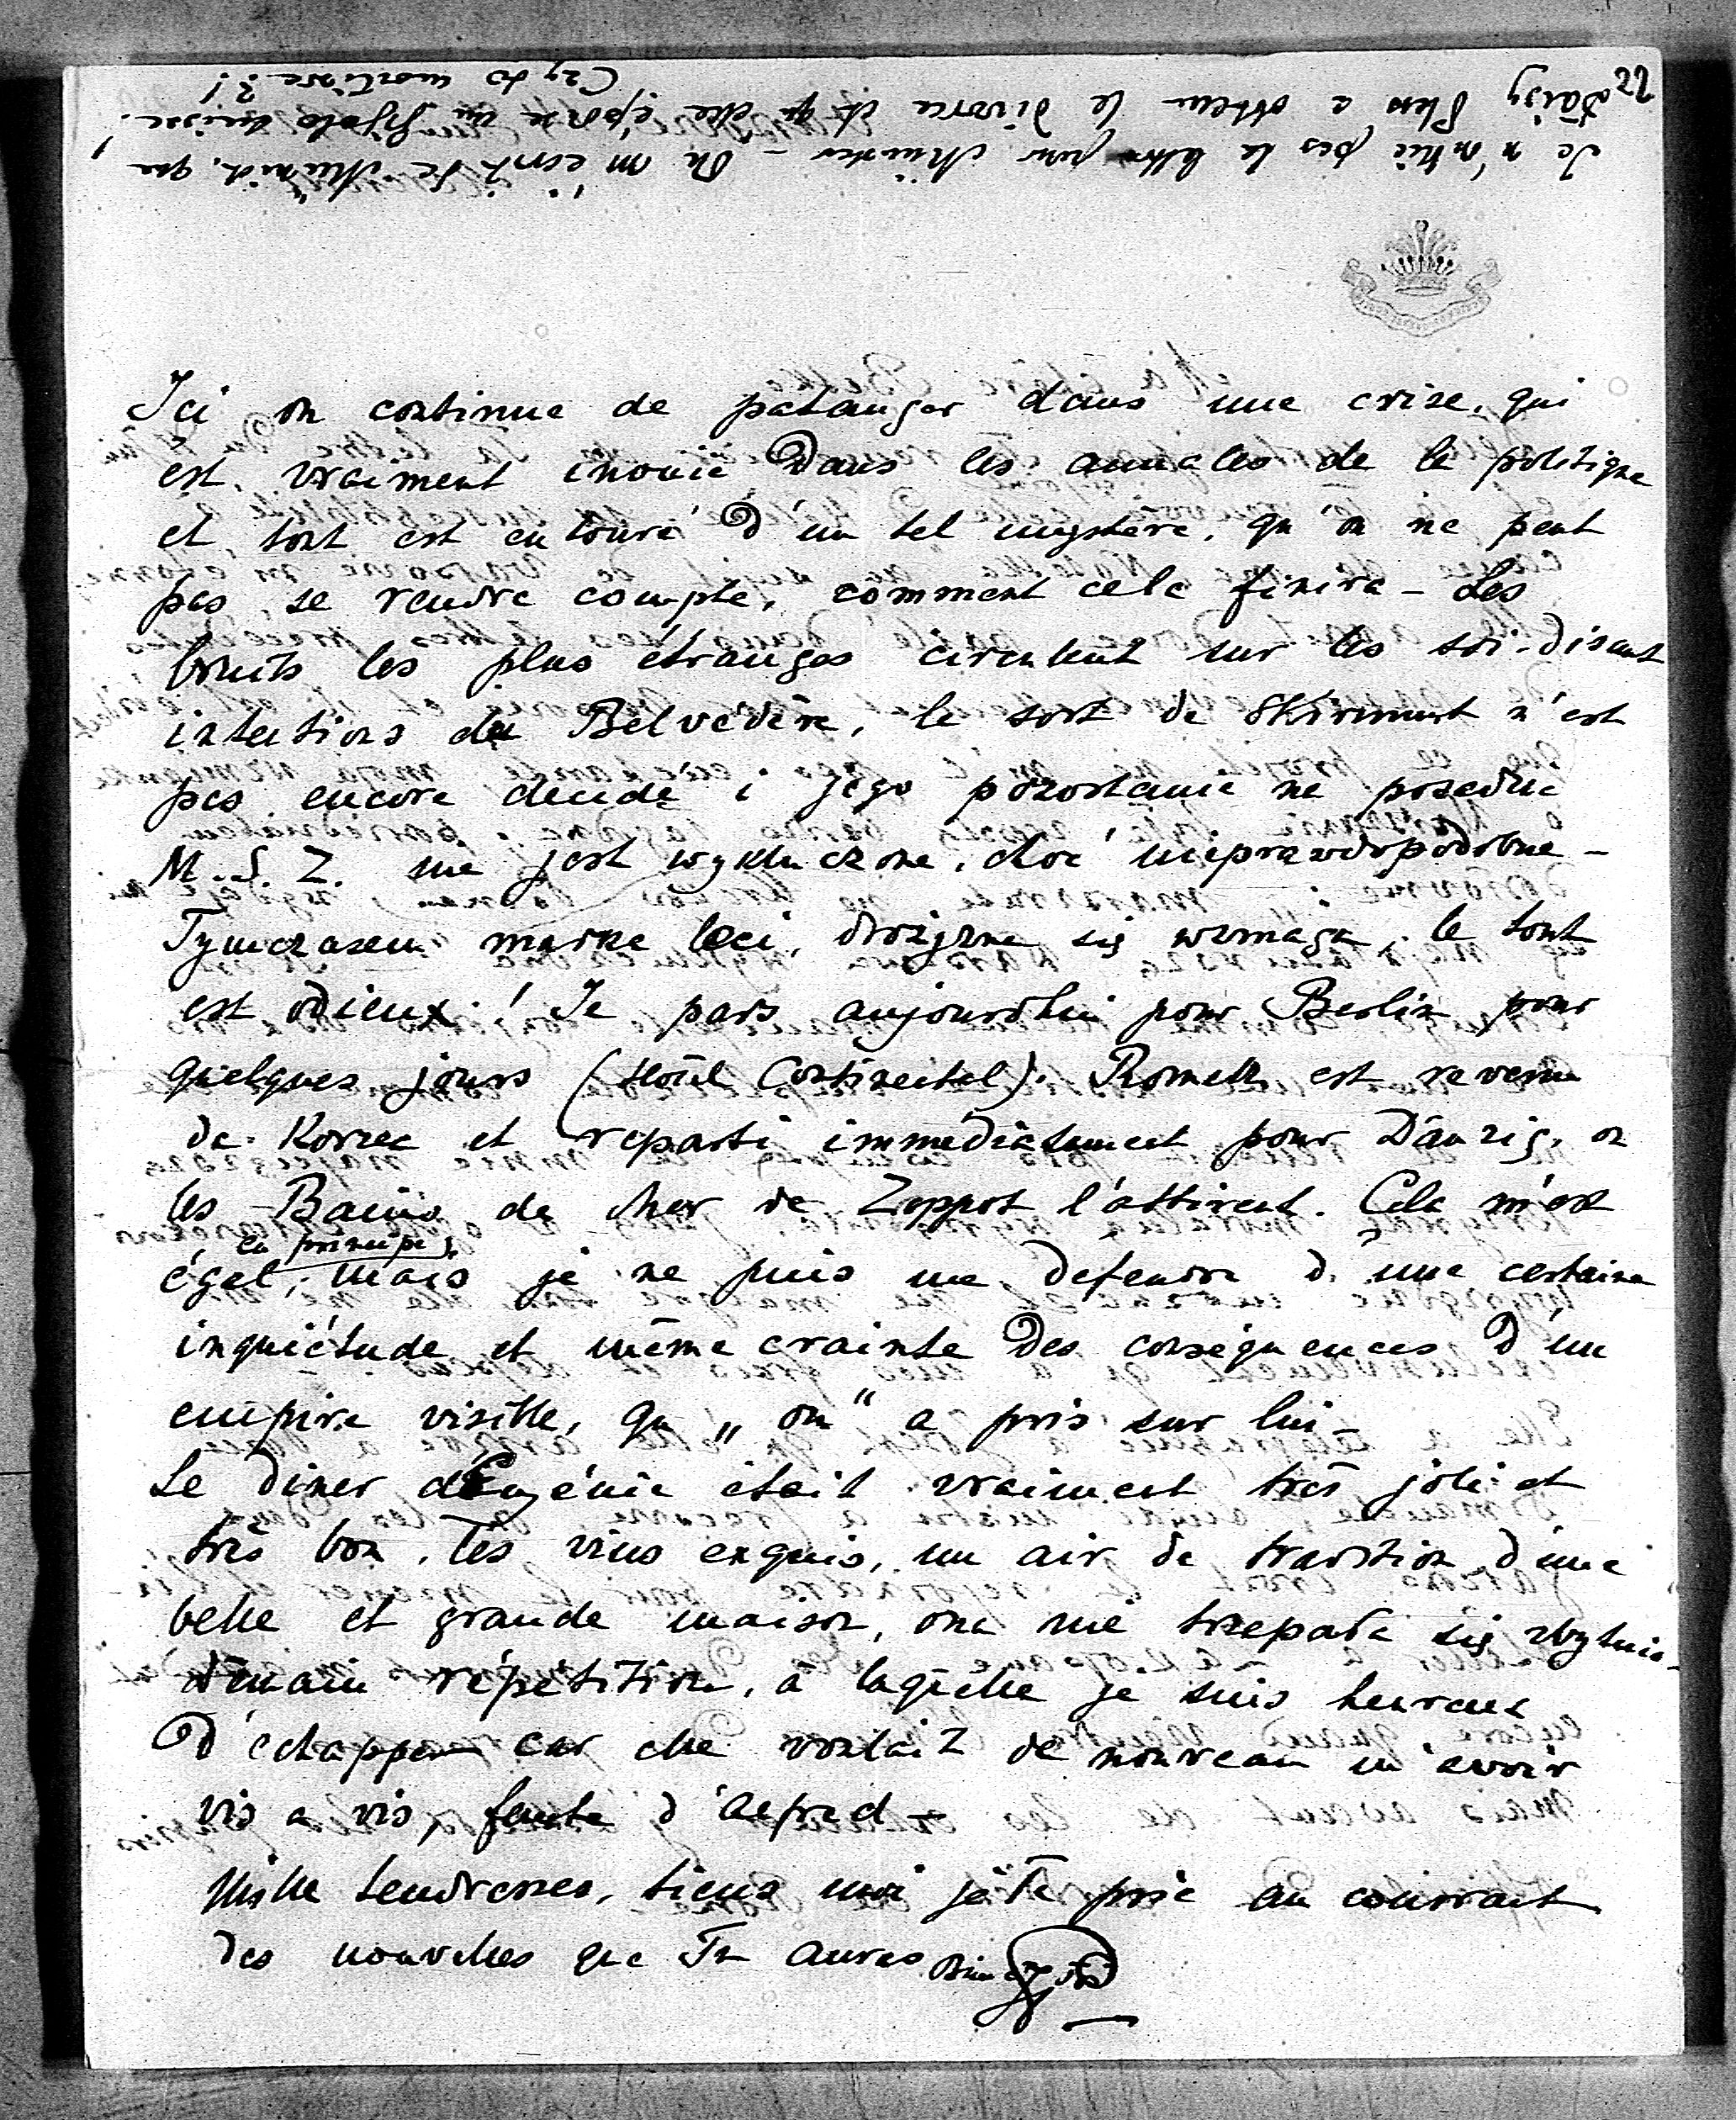 22
Je n'oublie pas la lettre pour Münster – On m'écrit de Munich, que
Daisy Pless a obtenu le divorce et qu'elle épouse un gigolo suisse.
Czy to możliwe ?!
Ici on continue de patauger dans une crise, qui
est vraiment inouïe dans les annales de la politique
et tout est entouré d'un tel mystère, qu'on ne peut
pas se rendre compte, comment cela finira – Les
bruits les plus étranges circulent sur les soi-disant
intentions du Belvédère, le sort de Skirmunt n'est
pas encore décidé i jego pozostanie na posadzie
M.S.Z. nie jest wykluczone, choć nieprawdopodobne –
Tymczasem marka leci, drożyzna się wzmaga, le tout
est odieux ! Je pars aujourdhui pour Berlin pour
quelques jours (Hôtel Continental). Romek est revenu
de Korzec et reparti immédiatement pour Danzig, où
les Bains de Mer de Zoppot l'attirent. Cela m'est
égal, en principe, mais je ne puis me défendre d'une certaine
inquiétude et même crainte des conséquences d'un
empire visible, qu'„on" a pris sur lui –
Le diner d'Eugénie était vraiment très joli et
très bon, les vins exquis, un air de tradition d'une
belle et grande maison, ona nie trzepała się zbytnio –
demain répétition, à laquelle je suis heureux
d'échapper car elle voulait de nouveau m'avoir
vis a vis, faute d'Alfred –
Mille tendresses, tiens moi je Te prie au courant
des nouvelles que Tu auras